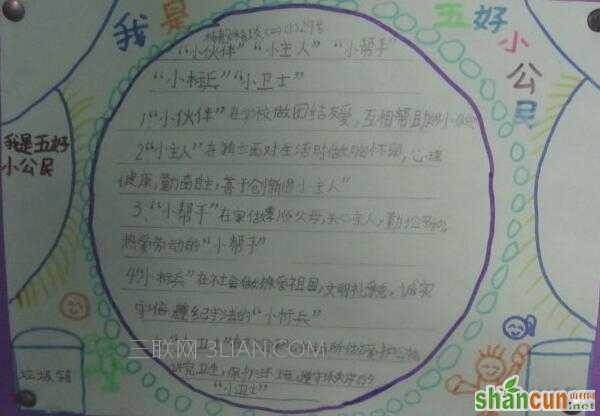 我是
五好小公民
"小伙伴" "小主人" "小帮手"
"小标兵" "小卫士"
1."小伙伴"在学校做团结友爱,互相帮助的小伙伴
2"小主人"在独立面对生活时做胸怀 心理
健康,勤奋自主,善于创新的小主人"
3、"小帮手"在家做孝顺父母,关心亲人,勤
热爱劳动的"小帮手"
4"小标兵"在社会做热爱祖国,文明礼 诚实
守信 遵纪守法的"小标兵"
讲究卫生,保护环境,遵守秩序的
"小卫士"
我是五好
小公民
垃圾箱
三联网 3LIAN.COM
shancun
.net